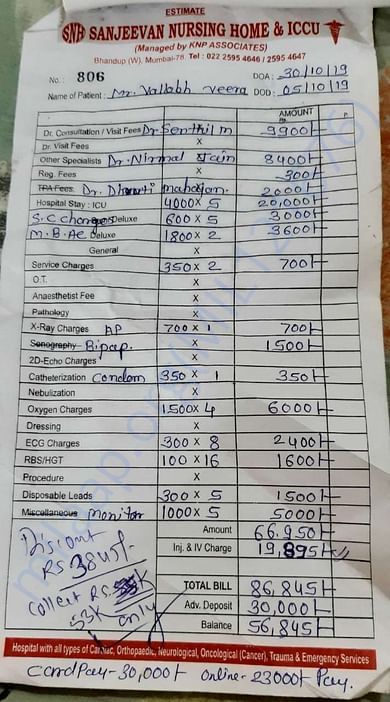 ESTIMATE
SNH SANJEEVAN NURSING HOME & ICCU
(Managed by KNP ASSOCIATES)
Bhandup (W), Mumbai-78. Tel : 022 2595 4646 / 2595 4647
No.: 806 DOA: 30/10/19
Name of Patient: Mr. Vallabh Veera DOD: 05/10/19
AMOUNT
Rs. P.
Dr. Consultation / Visit Fees Dr Senthil m 9900/-
Dr. Visit Fees X
Other Specialists Dr. Nirmal Jain 8400/-
Reg. Fees X 300/-
TPA Fees Dr. Dhruti mahajan. 2000/-
Hospital Stay : ICU 4000 X 5 20,000/-
S.C charges Deluxe 600 X 5 3000/-
M.B. AC Deluxe 1800 X 2 3600/-
General X
Service Charges 350 X 2 700/-
O.T. X
Anaesthetist Fee X
Pathology X
X-Ray Charges AP 700 X 1 700/-
Sonography Bipap. X 1500/-
2D-Echo Charges X
Catheterization Condom 350 X 1 350/-
Nebulization X
Oxygen Charges 1500 X 4 6000/-
Dressing X
ECG Charges 300 X 8 2400/-
RBS/HGT 100 X 16 1600/-
Procedure X
Disposable Leads 300 X 5 1500/-
Miscellaneous Monitor 1000 X 5 5000/-
Amount 66,950/-
Inj. & IV Charge 19,895/-
Discount
Rs 3845/-
Collect Rs.
53K only
TOTAL BILL 86,845/-
Adv. Deposit 30,000/-
Balance 56,845/-
Hospital with all types of Cardiac, Orthopaedic, Neurological, Oncological (Cancer), Trauma & Emergency Services
Card Pay - 30,000/- online - 23000/- Pay.